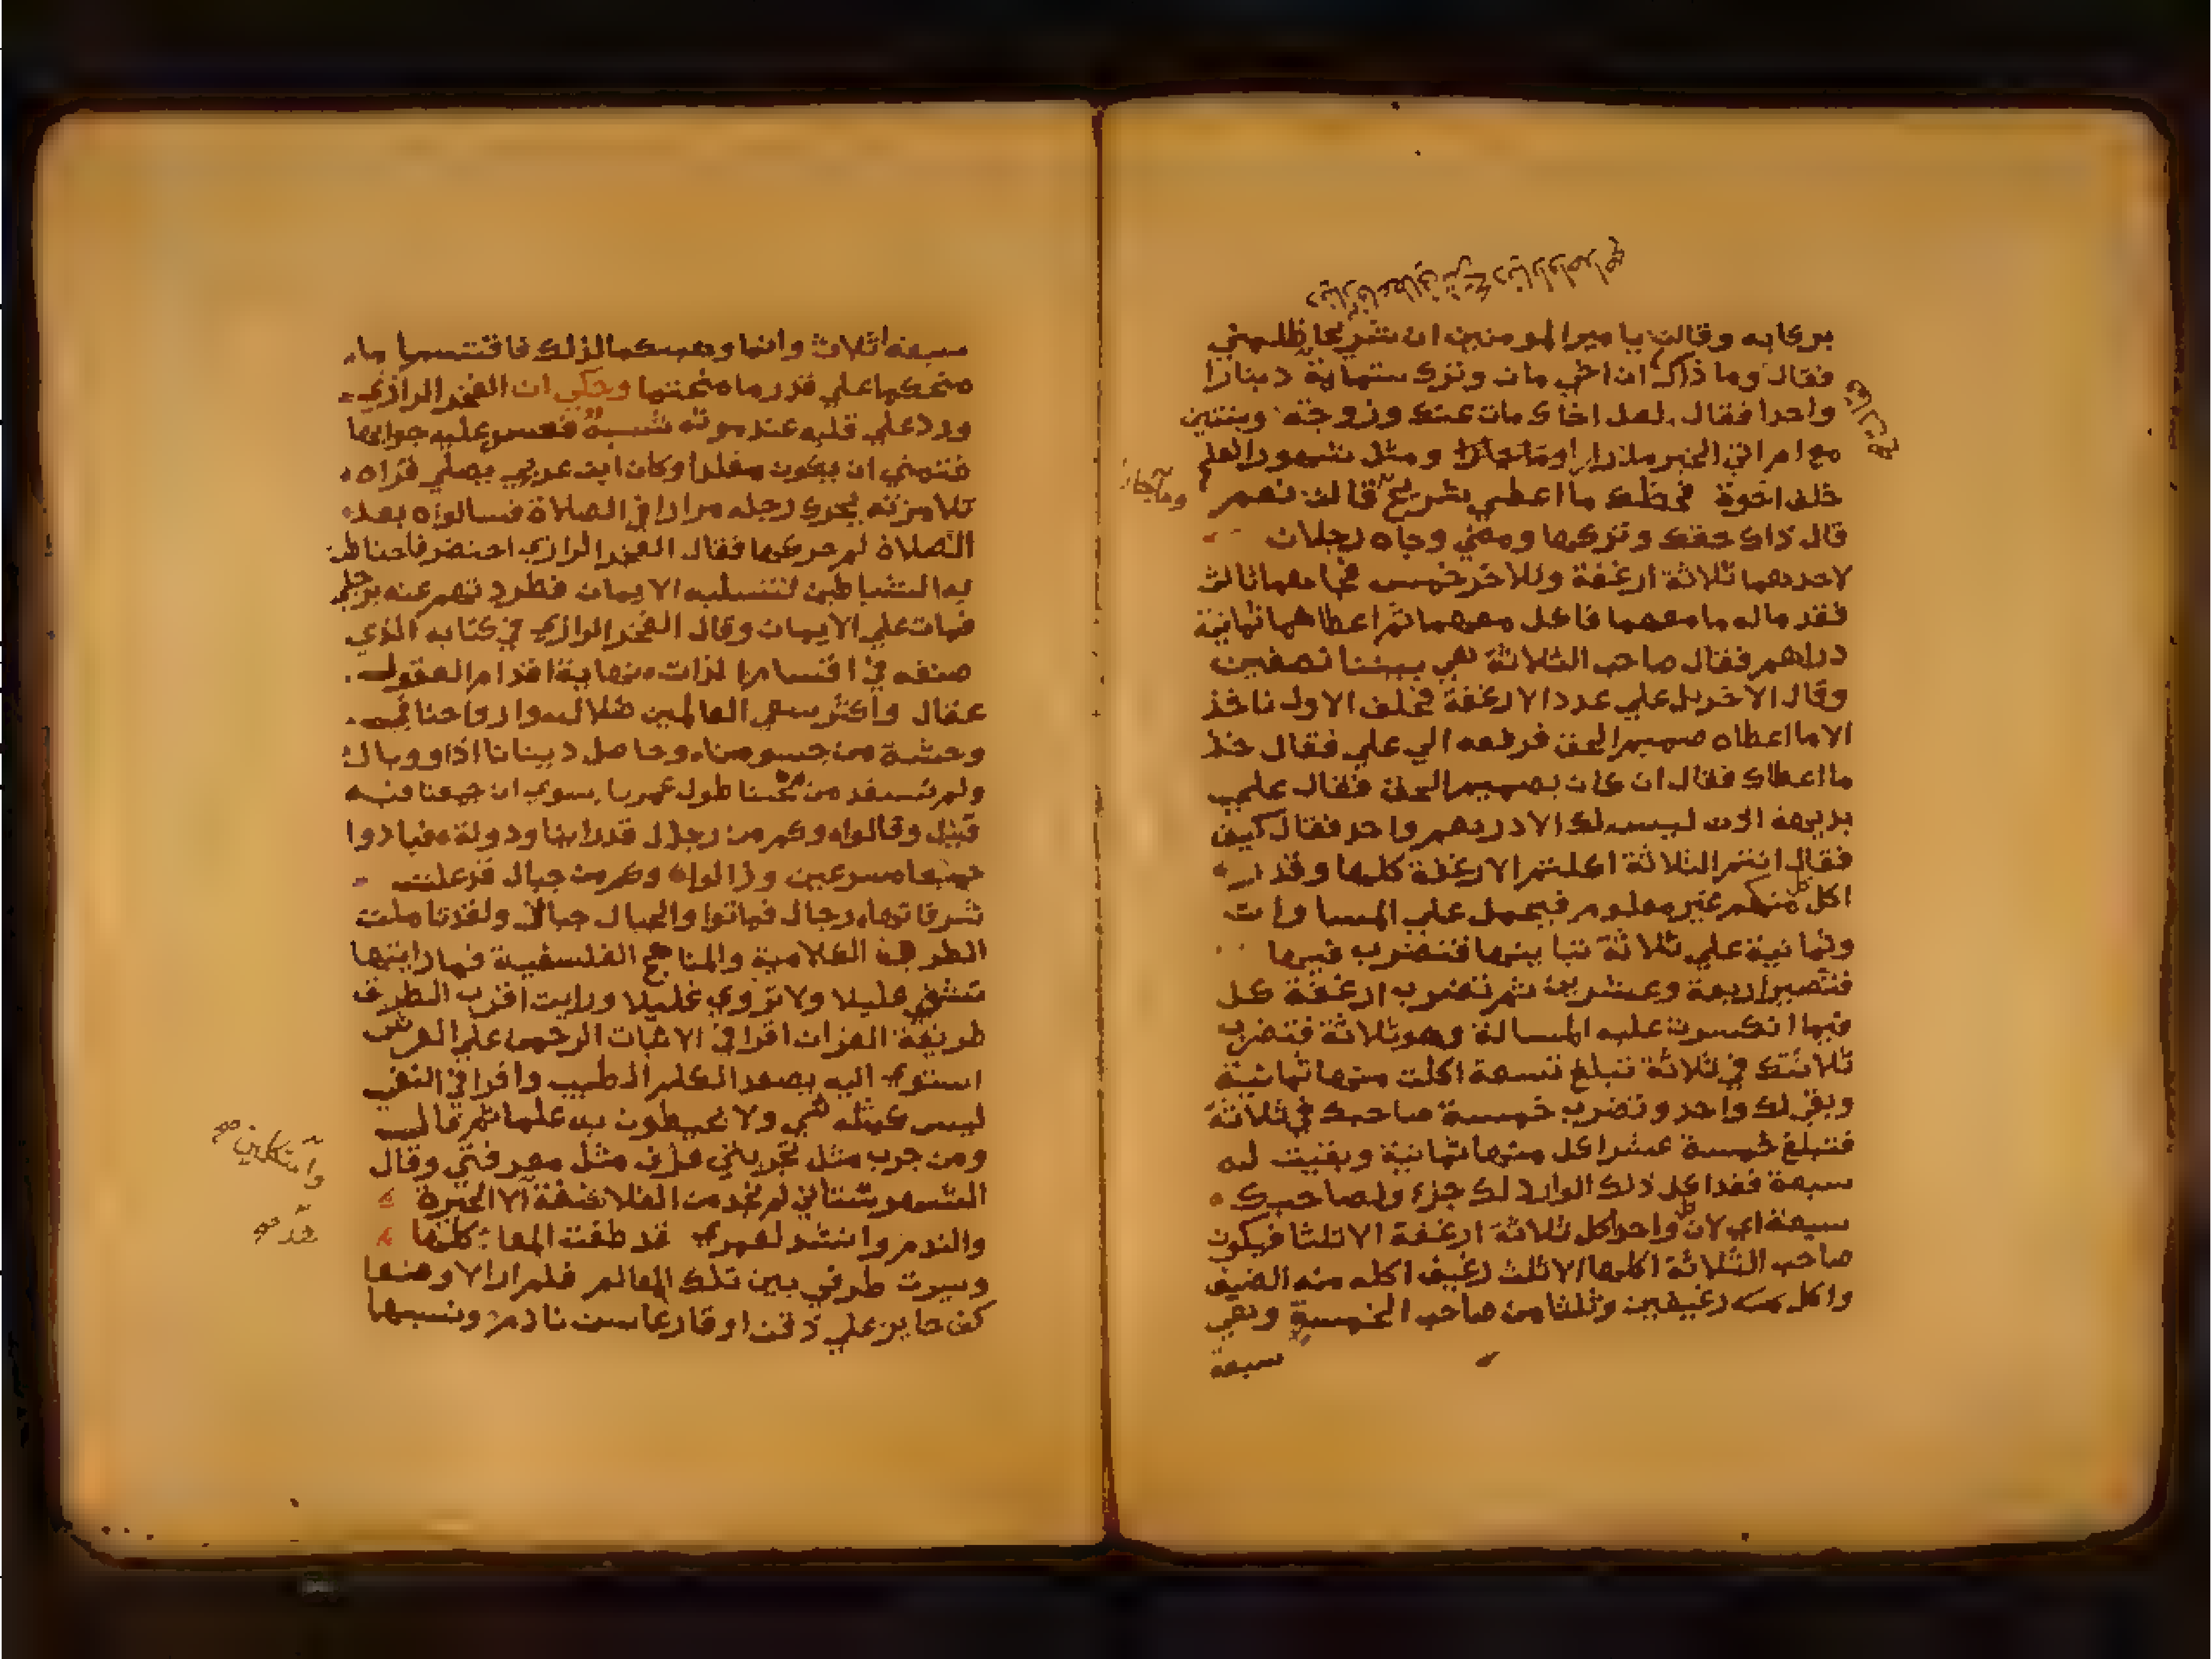 بركابه وقالت يا ميرا لمومنين ان شريحا ظلمني
فقال وما ذاك ان اخي مات وترك ستماية دينارا
واحدا فقال لعل اخاك مات عنك وزوجة وبنتين
مع ام اثني
خلف اخوة فحظك ما اعطي شريح قالت نعم
قال ذاك حقك وتركها ومضي وجاه رجلان
لاحدهما ثلاثة ارغفة وللاخر خمس فجاهما ثالث
فقدما له ما معهما فاكل معهما ثم اعطاهما ثمانية
دراهم فقال صاحب الثلاثة هي بيننا نصفين
وقال الاخر بل علي عدد الارغفة فحلف الاول ناخذ
الا ما اعطاه صميم الحق فرفعه الي علي فقال خذ
ما اعطاك فقال ان كان بصميم الحق فقال علي
بديهة اذن ليس لك الا درهم واحد فقال كيف
فقال انتم الثلاثة اكلتم الارغفة كلها وقدر
اكل كل منكم غير معلوم فيحمل علي المساوات
وثمانية علي ثلاثة تباينها فتضرب فيها
فتصير اربعة وعشرين ثم تضرب ارغفة كل
فيما انكسرت عليه المسالة وهو ثلاثة فتضرب
ثلاثتك في ثلاثة تبلغ تسعة اكلت منها ثمانية
وبقي لك واحد وتضرب خمسة صاحبك في ثلاثة
فتبلغ خمسة عشر اكل منها ثمانية وبقيت له
سبعة فقد اكل ذلك الوارد لك جزء ولصاحبك
سبعة اي لان كل واحد اكل ثلاثة ارغفة الا ثلثا فيكون
صاحب الثلاثة اكلها الا ثلث رغيف اكله منه الضيف
واكل رغيفين وثلثا من صاحب الخمسة وهي
سبعة
سبعة اثلاث وانما وهبكما لذلك فاقتسما ما
منحكما علي قدر ما منحتما وحكي ان الفخر الرازي
ورد علي قلبه عند موته شبهة فعسر عليه جوابها
فتمني ان يكون مقلدا وكان ابن عربي يصلي فراه
تلامزته يحرك رجله مرارا في الصلاة فسالواه بعد
الصلاة لم حركها فقال الفخر الرازي احتضر فاحتاطت
به الشياطين لتسلبه الايمان فطردتهم عنه برجلي
فمات علي الايمان وقال الفخر الرازي في كتابه الذي
صنفه في اقسام الذات نهاية اقدام العقول
عقال واكثر سعي العالمين ضلال وارواحنا في
وحشة من جسومنا وحاصل دنيانا اذا ووبال
ولم نستفد من بحثنا طول عمرنا سوي ان جمعنا فيه
قيل وقالوا وكم من رجال قد راينا ودولة فبادوا
جميعا مسرعين وزالوا وكم من جبال قد علت
شرفاتها رجال فماتوا والجبال جبال ولقد تاملت
الطرق الكلامية والمناهج الفلسفية فما رايتها
تشفي عليلا ولا تروي غليلا ورايت اقرب الطرق
طريقة القران اقرا في الاثبات الرحمن علي العرش
استوي اليه يصعد الكلم الطيب واقرا في النفي
ليس كمثله شي ولا يحيطون به علما ثم قال
ومن جرب مثل تجربتي عرف مثل معرفتي وقال
الشهرستاني لم نجد من الفلاسفة الا الحيرة
والندم وانشد لعمري قد طفت المعاهد كلها
وسيرت طرفي بين تلك المعالم فلم ار الا واضعا
كف حاير علي ذقن او قارعا سن نادم ونسبها